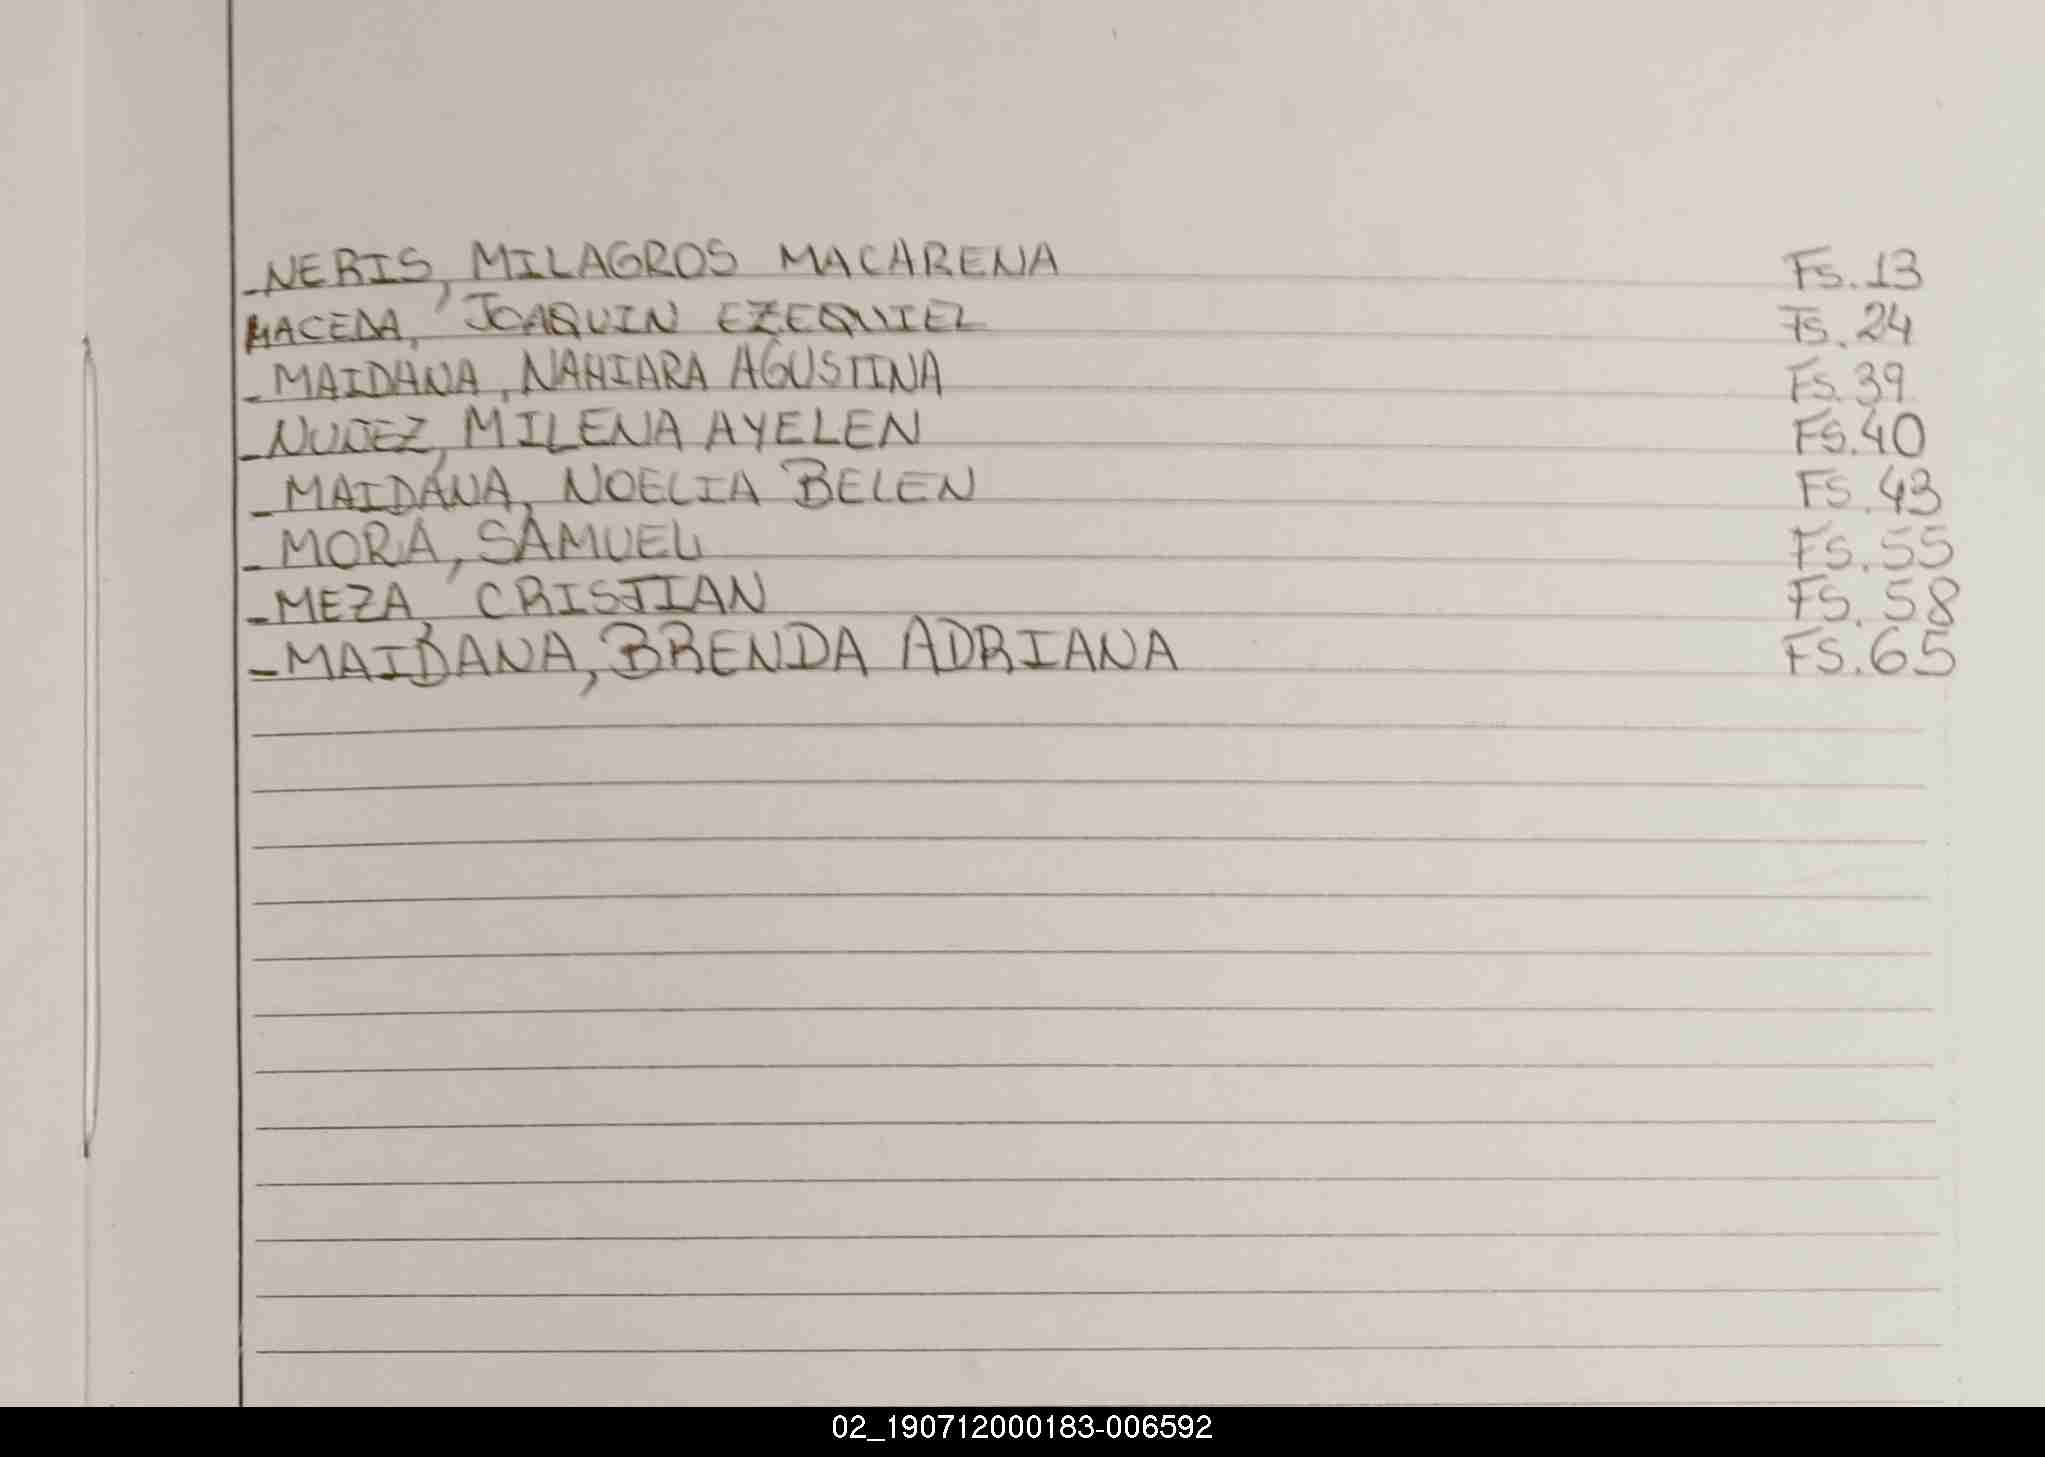 -NERIS, MILAGROS MACARENA Fs.13
MACEDA, JOAQUIN EZEQUIEL Fs.24
-MAIDANA, NAHIARA AGUSTINA Fs.39
-NUÑEZ, MILENA AYELEN Fs.40
-MAIDANA, NOELIA BELEN FS.43
-MORA, SAMUEL FS.55
-MEZA, CRISTIAN FS.58
-MAIDANA, BRENDA ADRIANA FS.65
02_190712000183-006592